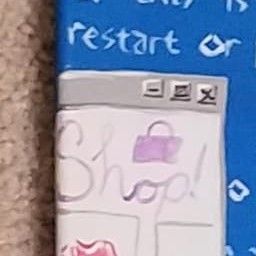 is
restart or
Shop!